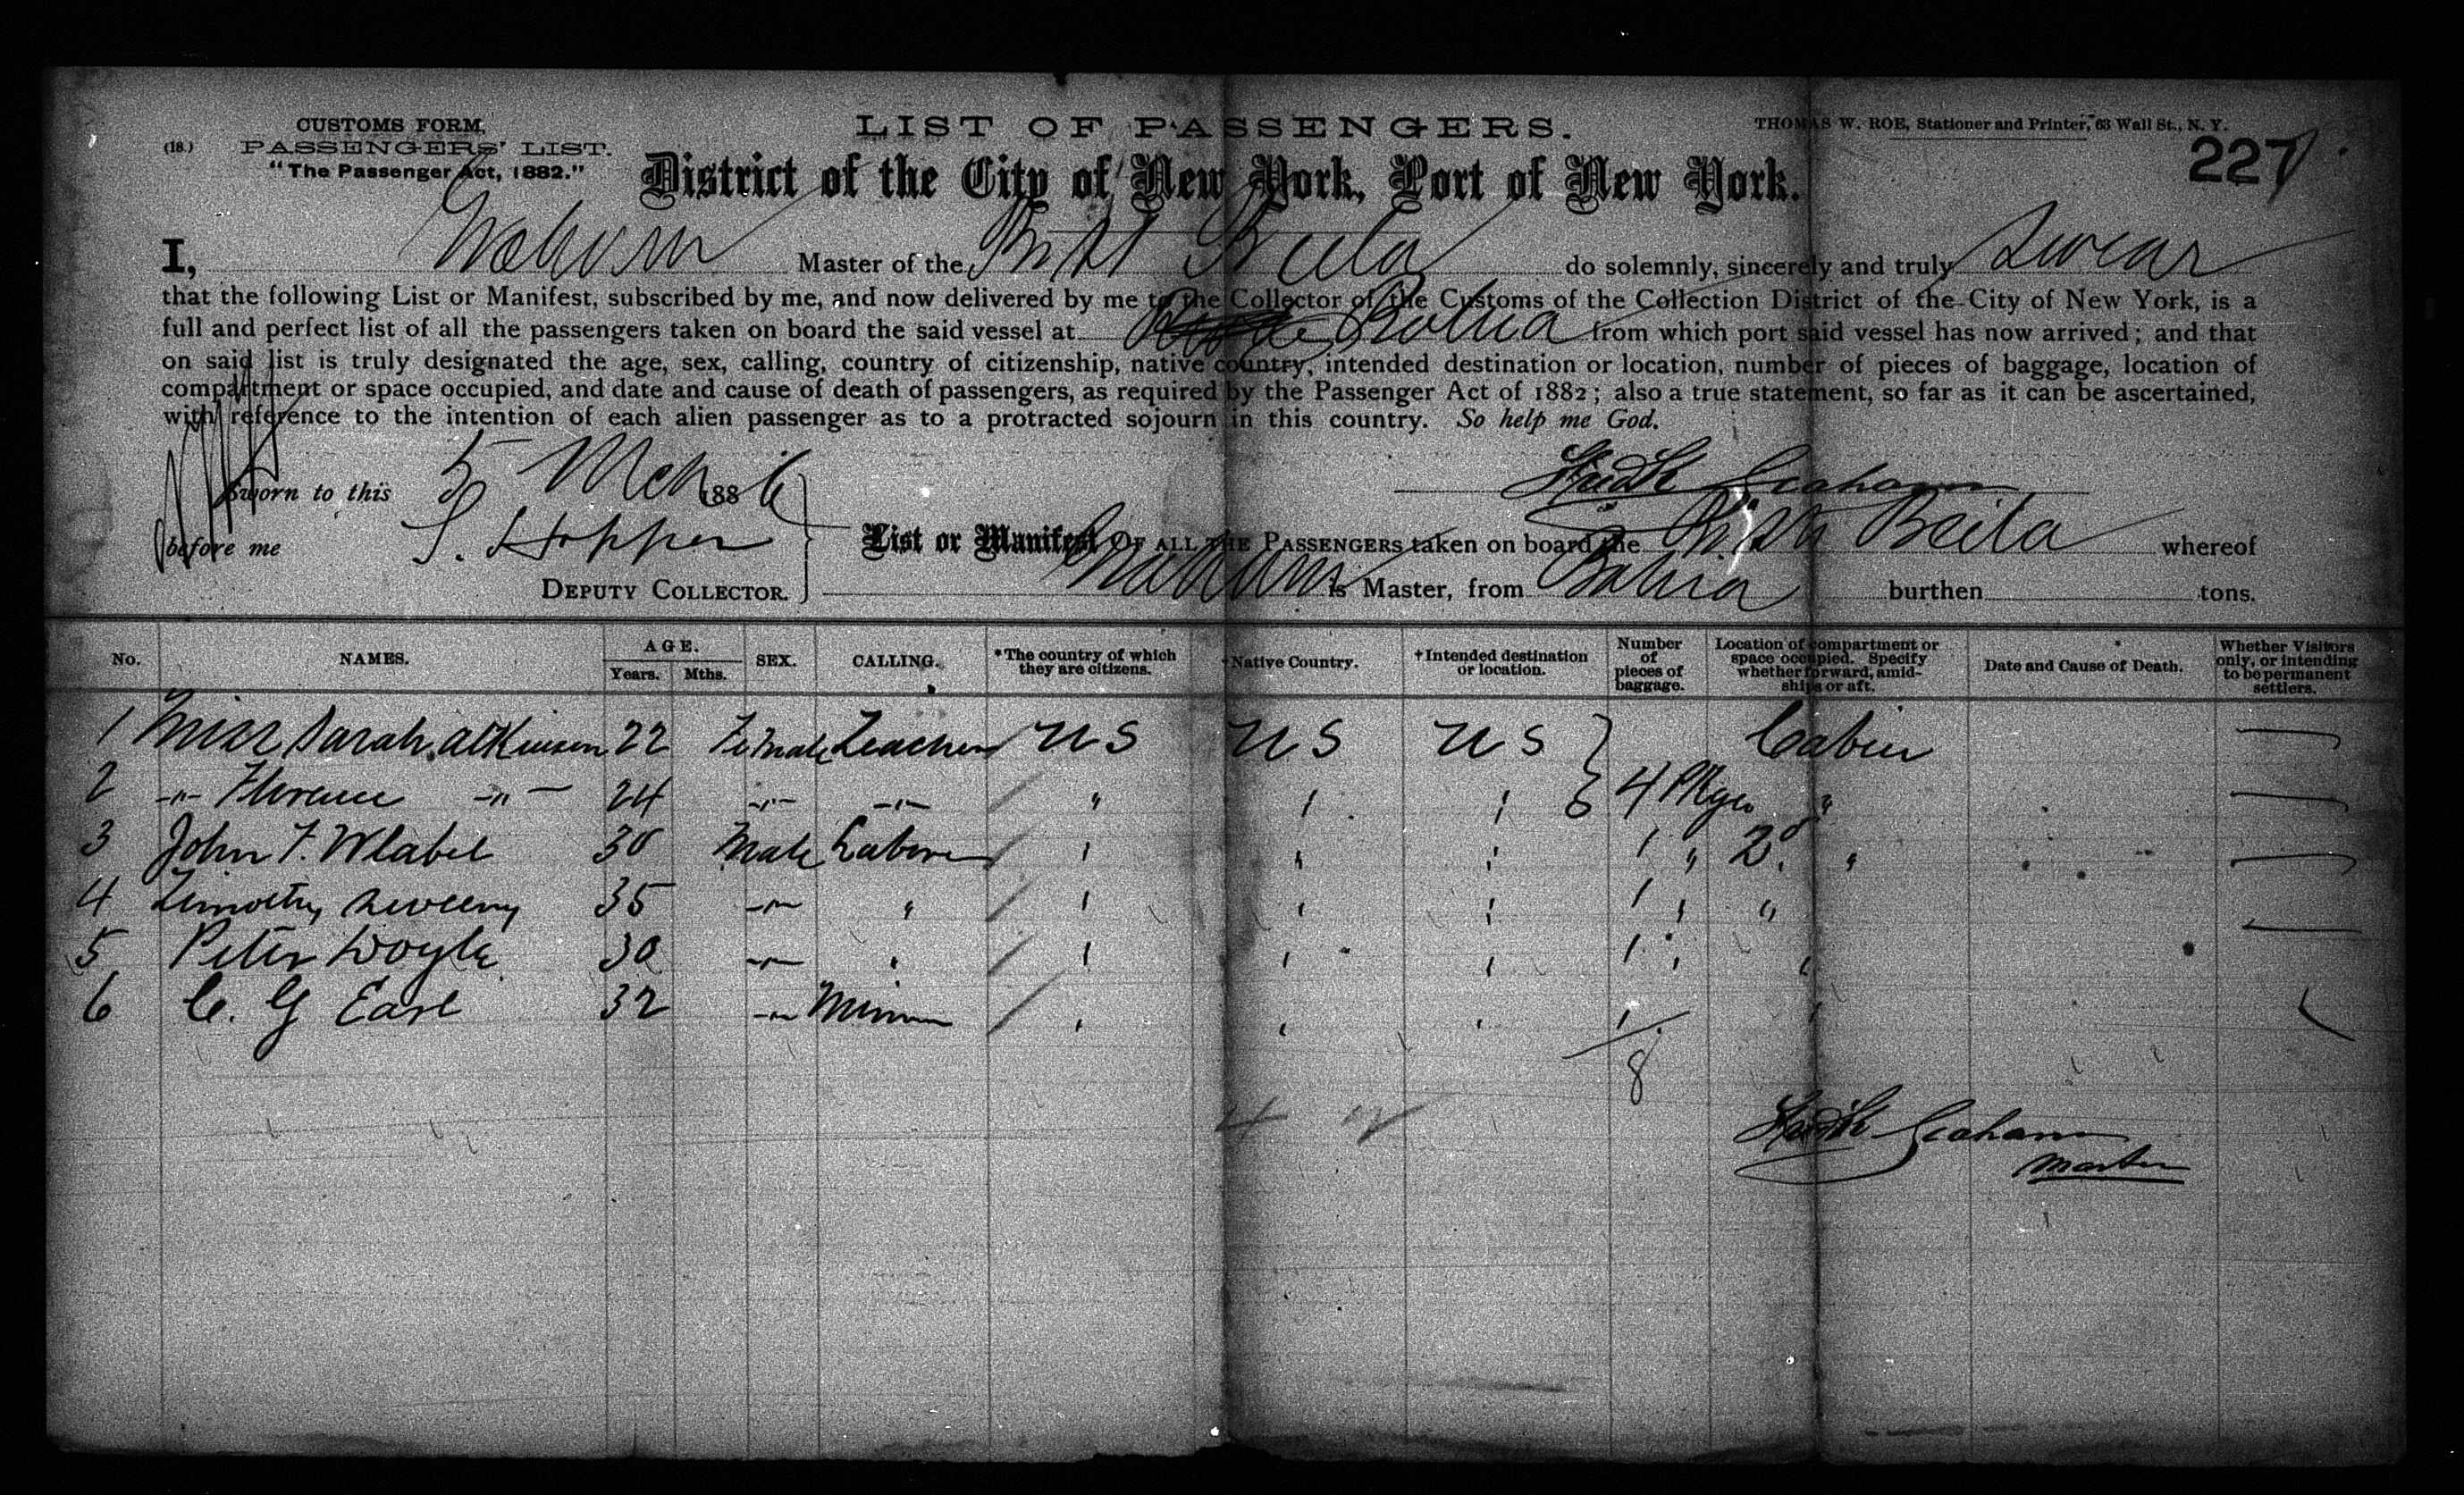 CUSTOMS FORM,
(18.) PASSENGERS' LIST.
"The Passenger Act, 1882."
LIST OF PASSENGERS.
THOMAS W. ROE, Stationer and Printer, 63 Wall St., N. Y.
227
District of the City of New York, Port of New York.
I, Graham Master of the Beila do solemnly, sincerely and truly swear
that the following List or Manifest, subscribed by me, and now delivered by me to the Collector of the Customs of the Collection District of the City of New York, is a
full and perfect list of all the passengers taken on board the said vessel at Bahia from which port said vessel has now arrived; and that
on said list is truly designated the age, sex, calling, country of citizenship, native country, intended destination or location, number of pieces of baggage, location of
compartment or space occupied, and date and cause of death of passengers, as required by the Passenger Act of 1882; also a true statement, so far as it can be ascertained,
with reference to the intention of each alien passenger as to a protracted sojourn in this country. So help me God.
Graham
Sworn to this 5 Mch 1886
before me S. Hopper
DEPUTY COLLECTOR.
List or Manifest OF ALL THE PASSENGERS taken on board the Beila whereof
Graham is Master, from Bahia burthen tons.
No. NAMES. AGE. Years. Mths. SEX. CALLING. *The country of which they are citizens. †Native Country. †Intended destination or location. Number of pieces of baggage. Location of compartment or space occupied. Specify whether forward, amidships or aft. Date and Cause of Death. Whether Visitors only, or intending to be permanent settlers.
1 Miss Sarah Atkinson 22 Female Teacher U S U S U S Cabin
2 -"- Florence -"- 24 -"- -"- " " " 4 Pkges "
3 John F. 30 Male Laborer " " " 1 " 2d "
4 Timothy Sweeny 35 -"- " " " " 1 " "
5 Peter Doyle 30 -"- " " " " 1 " "
6 C. G Earl 32 -"- Miner " " " 1 "
8
Graham
Master